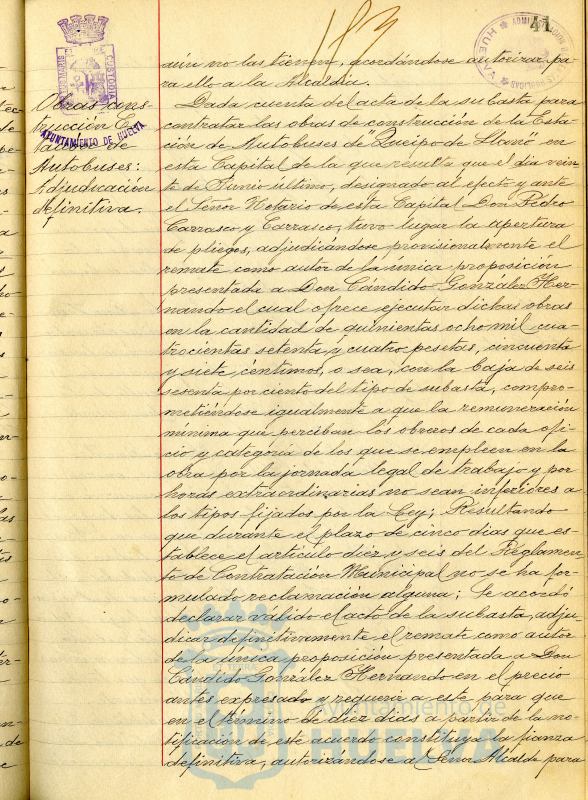 183
41
aún no las tienen, acordándose autorizar pa-
ra ello a la Alcaldía.
Obras cons-
trucción Es-
tación de
Autobuses:
Adjudicación
definitiva.
AYUNTAMIENTO DE HUELVA
Dada cuenta del acta de la subasta para
contratar las obras de construcción de la Esta-
ción de Autobuses de "Queipo de Llano" en
esta Capital de la que resulta que el día vein-
te de Junio último, designado al efecto y ante
el Señor Notario de esta Capital Don Pedro
Carrasco y Carrasco, tuvo lugar la apertura
de pliegos, adjudicándose provisionalmente el
remate como autor de la única proposición
presentada a Don Cándido González Her-
nando el cual ofrece ejecutar dichas obras
en la cantidad de quinientas ocho mil cua-
trocientas setenta y cuatro pesetas, cincuenta
y siete céntimos, o sea, con la baja de seis
sesenta por ciento del tipo de subasta, compro-
metiéndose igualmente a que la remuneración
mínima que perciban los obreros de cada ofi-
cio y categoría de los que se empleen en la
obra por la jornada legal de trabajo y por
horas extraordinarias no sean inferiores a
los tipos fijados por la Ley; Resultando
que durante el plazo de cinco días que es-
tablece el artículo diez y seis del Reglamen-
to de Contratación Municipal no se ha for-
mulado reclamación alguna; Se acordó
declarar válido el acto de la subasta, adju-
dicar definitivamente el remate como autor
de la única proposición presentada a Don
Cándido González Hernando en el precio
antes expresado y requerir a este para que
en el término de diez días a partir de la no-
tificación de este acuerdo constituya la fianza
definitiva, autorizándose al Señor Alcalde para
Ayuntamiento de
HUELVA